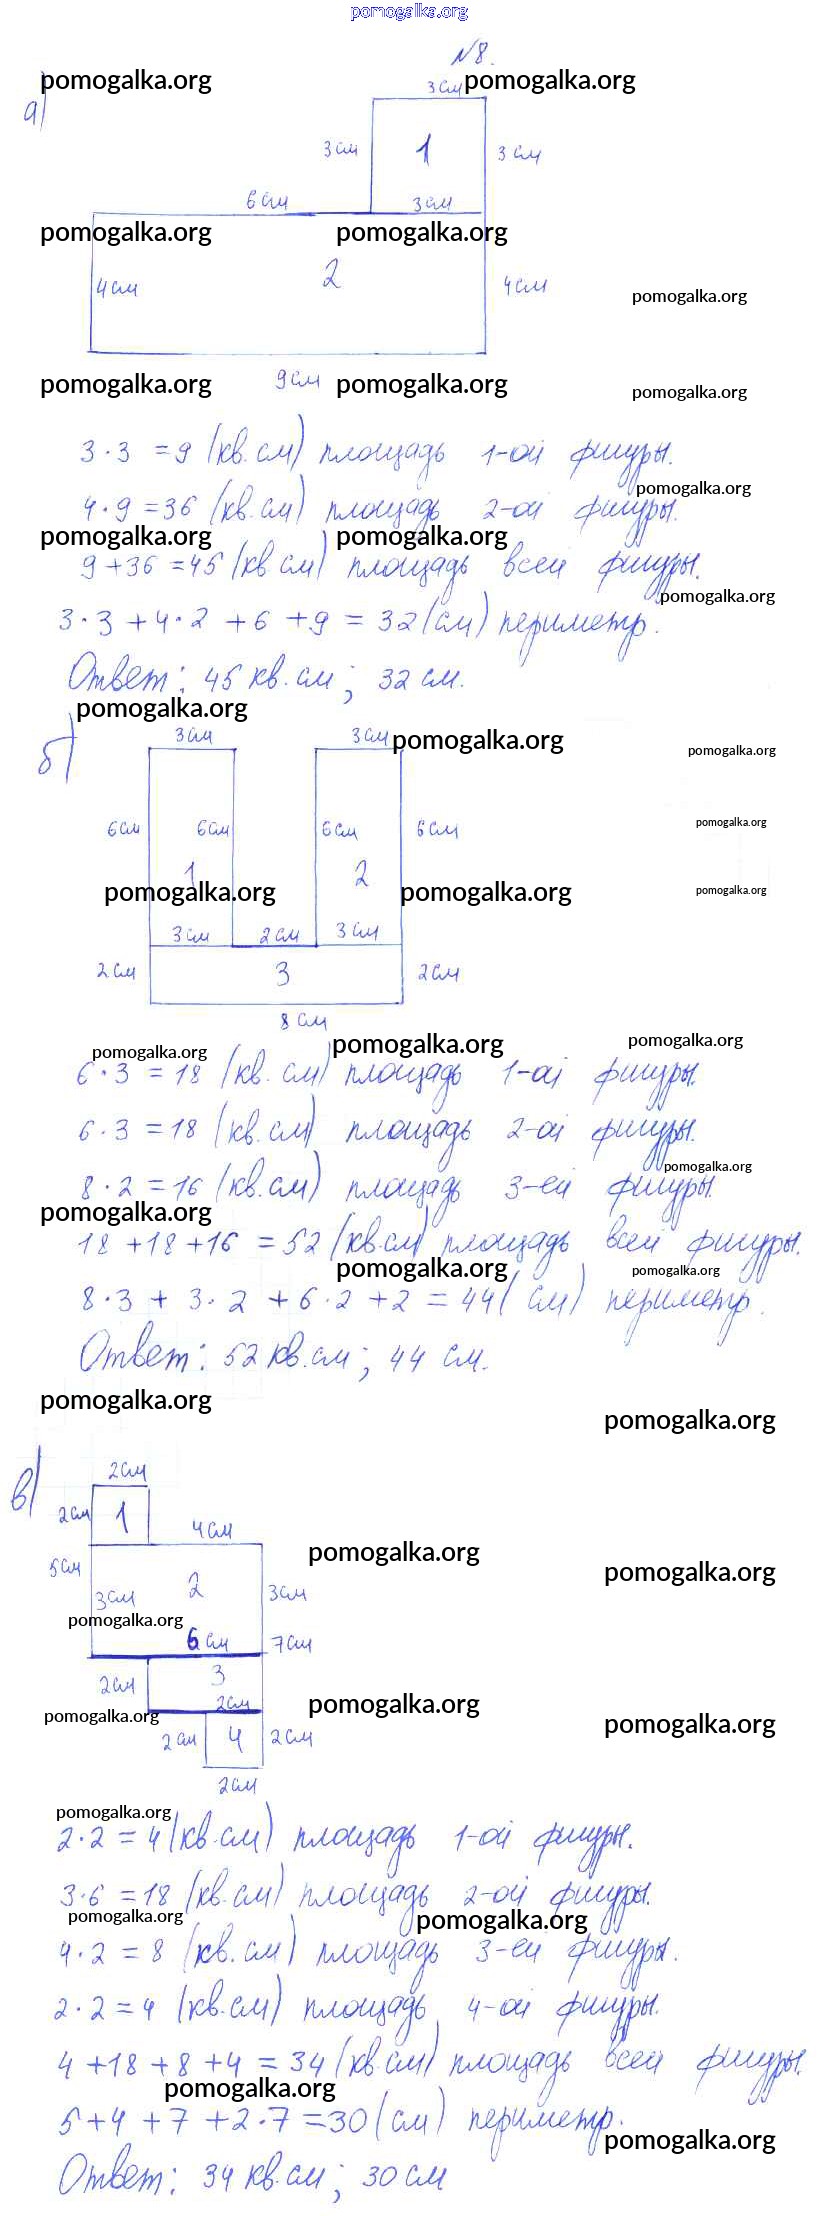 pomogalka.org
№8.
pomogalka.org pomogalka.org
а)
3см
3см 1 3см
6см 3см
pomogalka.org pomogalka.org
4см 2 4см
pomogalka.org
9см
pomogalka.org pomogalka.org pomogalka.org
3·3 =9 (кв.см) площадь 1-ой фигуры.
pomogalka.org
4·9=36 (кв.см) площадь 2-ой фигуры.
pomogalka.org pomogalka.org
9+36=45 (кв см) площадь всей фигуры.
pomogalka.org
3·3+4·2+6+9=32(см) периметр.
Ответ: 45 кв.см; 32 см.
pomogalka.org
б)
3см 3см
pomogalka.org pomogalka.org
pomogalka.org
6см 6см 6см 6см
1 2
pomogalka.org pomogalka.org pomogalka.org
3см 2см 3см
2см 3 2см
8см
pomogalka.org pomogalka.org pomogalka.org
6·3=18 (кв. см) площадь 1-ой фигуры.
6·3=18 (кв.см) площадь 2-ой фигуры.
pomogalka.org
8·2=16 (кв.см) площадь 3-ей фигуры.
pomogalka.org
18+18+16=52 (кв.см) площадь всей фигуры.
pomogalka.org pomogalka.org
8·3+3·2+6·2+2=44( см) периметр.
Ответ: 52 кв.см; 44 см.
pomogalka.org pomogalka.org
в)
2см
2см 1
4см
pomogalka.org pomogalka.org
5см
3см 2 3см
pomogalka.org
6см 7см
2см 3
2см
pomogalka.org pomogalka.org pomogalka.org
2см 4 2см
2см
pomogalka.org
2·2=4(кв.см) площадь 1-ой фигуры.
3·6=18 (кв.см) площадь 2-ой фигуры.
pomogalka.org pomogalka.org
4·2=8 (кв.см) площадь 3-ей фигуры.
2·2=4 (кв.см) площадь 4-ой фигуры.
4+18+8+4=34(кв см) площадь всей фигуры.
pomogalka.org
5+4+7+2·7=30(см) периметр.
pomogalka.org
Ответ: 34 кв.см; 30 см